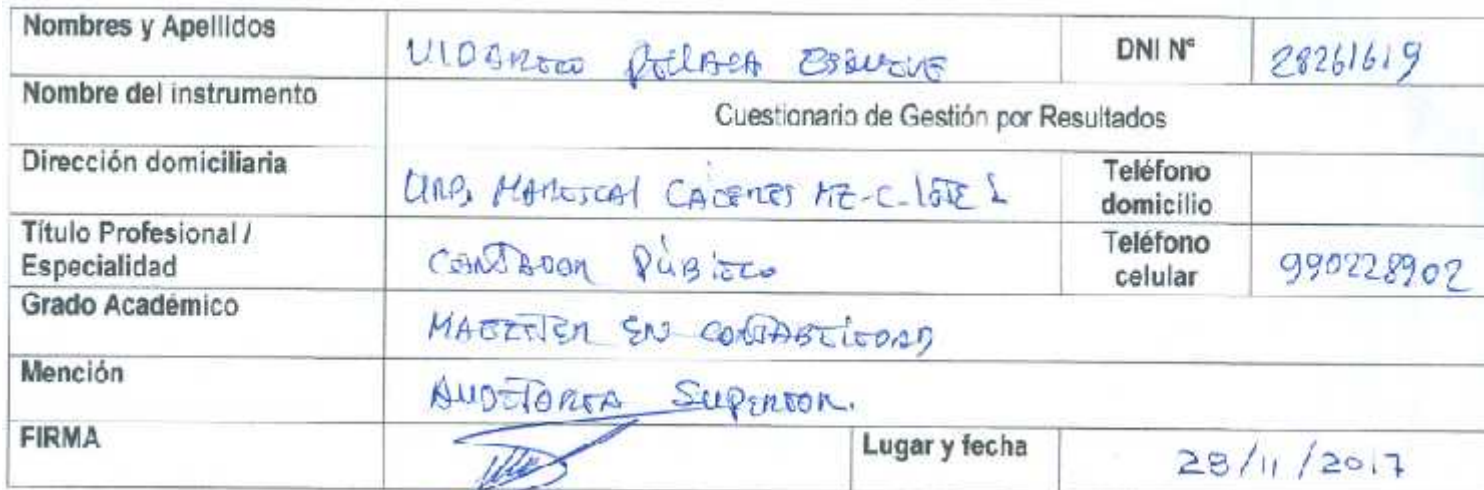 Nombres y Apellidos DNI N° 28261619
Nombre del instrumento Cuestionario de Gestión por Resultados
Dirección domiciliaria URB. MARISCAL CACERES MZ-C-LOTE Teléfono domicilio
Título Profesional / Especialidad CONTADOR PÚBLICO Teléfono celular 990228902
Grado Académico MAGISTER EN CONTABILIDAD
Mención AUDITORIA SUPERIOR.
FIRMA Lugar y fecha 28/11/2017